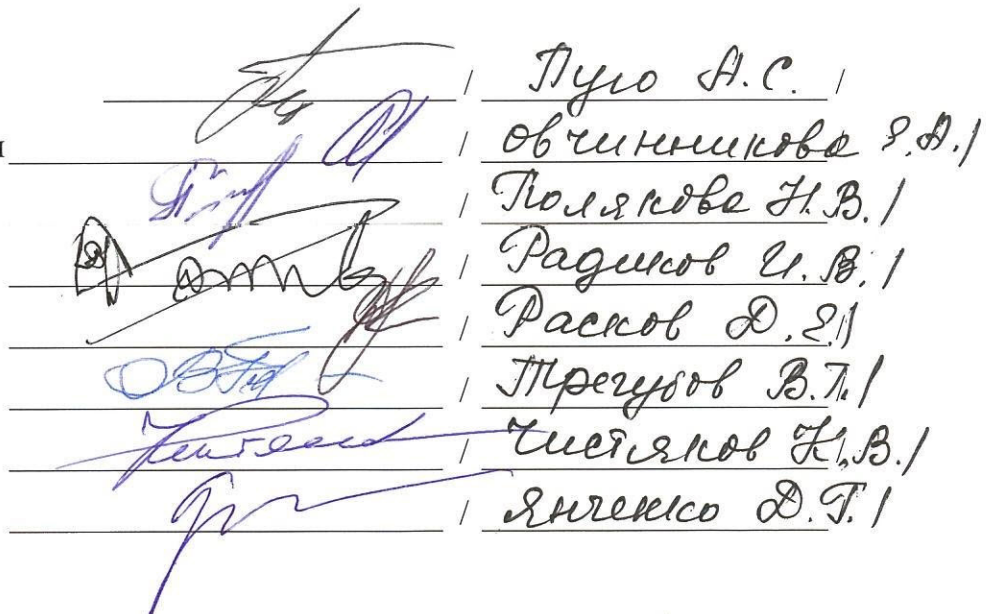 / Пуго А.С. /
/ Овчинникова Э.А. /
/ Полякова Н.В. /
/ Радиков И.В. /
/ Расков Д.Е. /
/ Трегубов В.П. /
/ Чистяков Н.В. /
/ Янченко Д.Г. /